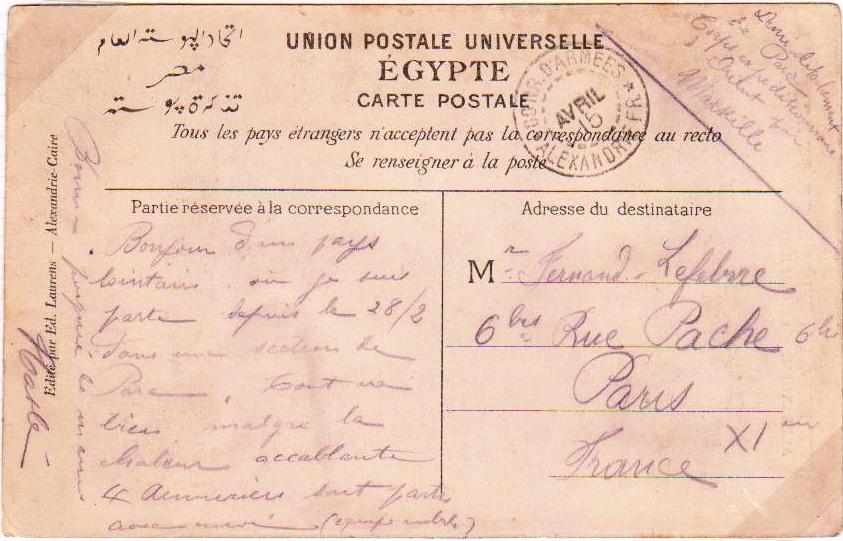 اتحاد الپوسته العام
مصر
تذكرة پوسته
UNION POSTALE UNIVERSELLE
ÉGYPTE
CARTE POSTALE
Tous les pays étrangers n'acceptent pas la correspondance au recto
Se renseigner à la poste
D'ARMÉES
AVRIL
15
ALEXANDRIE
de Parc
Corps expéditionnaire
d'Orient
Marseille
Edité par Ed. Laurens — Alexandrie-Caire
Partie réservée à la correspondance
Bonjour d'un pays
lointain où je suis
parti depuis le 28/2
dans une section de
Parc. Tout va
bien malgré la
chaleur accablante
4 Armuriers sont partis
avec moi
Bonne poignée de main
Adresse du destinataire
Mr Fernand Lefebvre
6 bis Rue Pache 6 bis
Paris
XI em
France